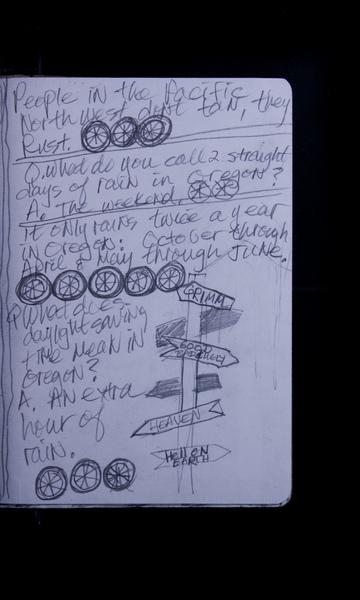 People in the Pacific
Northwest dont tan, they
Rust.
Q. what do you call 2 straight
days of rain in Oregon?
A. The weekend.
it only rains twice a year
in Oregon: October through
April & May through June.
Q What does
daylight saving
time mean in
Oregon?
A. AN extra
hour of
rain.
GRIMM
GOOD
HEAVEN
HELL ON
EARTH